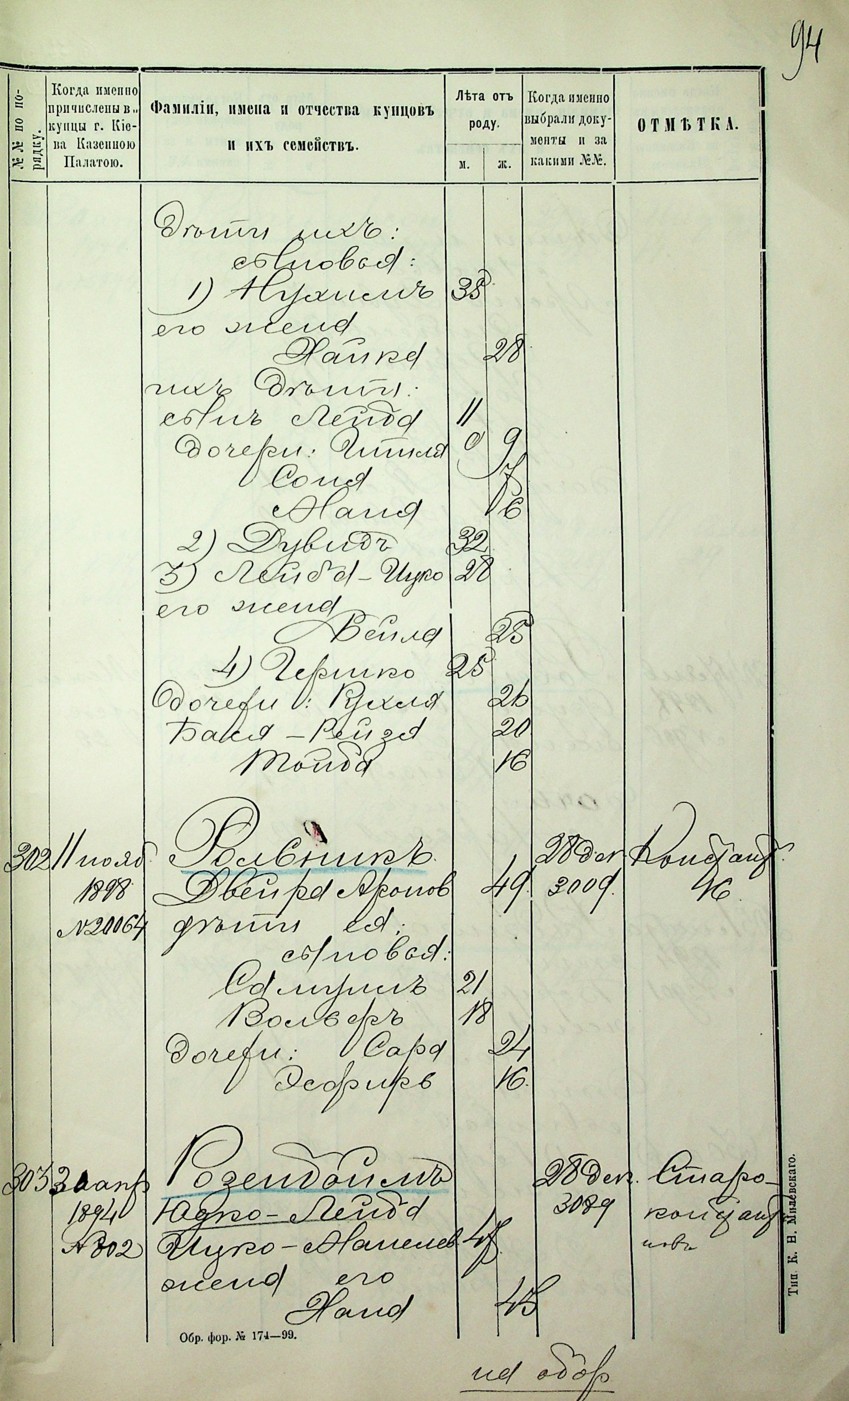 94
№№ по по-
рядку.
Когда именно
причислены в..
купцы г. Кіе-
ва Казенною
Палатою.
Фамиліи, имена и отчества купцовъ
и ихъ семействъ.
Лѣта отъ
роду.
м. ж.
Когда именно
выбрали доку-
менты и за
какими №№.
ОТМѢТКА.
Дѣти ихъ:
сыновья:
1) Нухимъ 38
его жена
Хайка 28
ихъ дѣти:
сынъ Лейба 11
дочери: Гитля 9
Соня 7
Хана 6
2) Дувидъ 32
3) Лейба-Ицко 28
его жена
Бейла 25
4) Гершко 25
дочери: Рухля 26
Бася-Рейза 20
Тойба 16
302 11 нояб. Рольникъ 28 дек. Констант.
1898 Двейра Аронов 49 3009. 16
№ 20064 дѣти ея:
сыновья:
Самуилъ 21
Вольфъ 18
дочери: Сара 24
Эсфирь 16.
303 апр Розенбоймъ 28 дек. Старо-
1894 Юдко-Лейба 3089 констант
№ 302 Ицко-Ханелев 47 новъ
жена его
Хана 45
Обр. фор. № 174—99.
Тип. К. Н. Милевскаго.
на обор